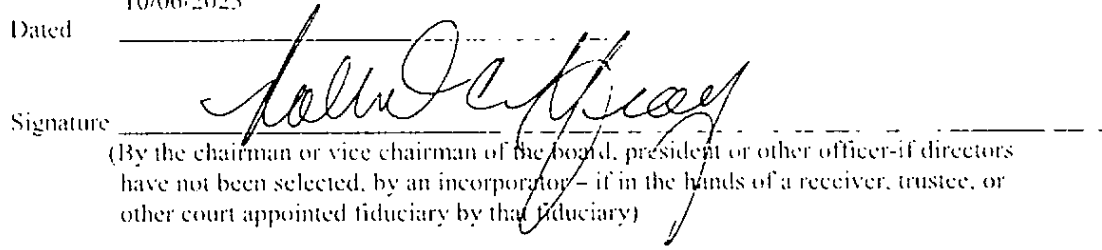 10/06/2023
Dated
Signature
(By the chairman or vice chairman of the board, president or other officer-if directors
have not been selected, by an incorporator – if in the hands of a receiver, trustee, or
other court appointed fiduciary by that fiduciary)